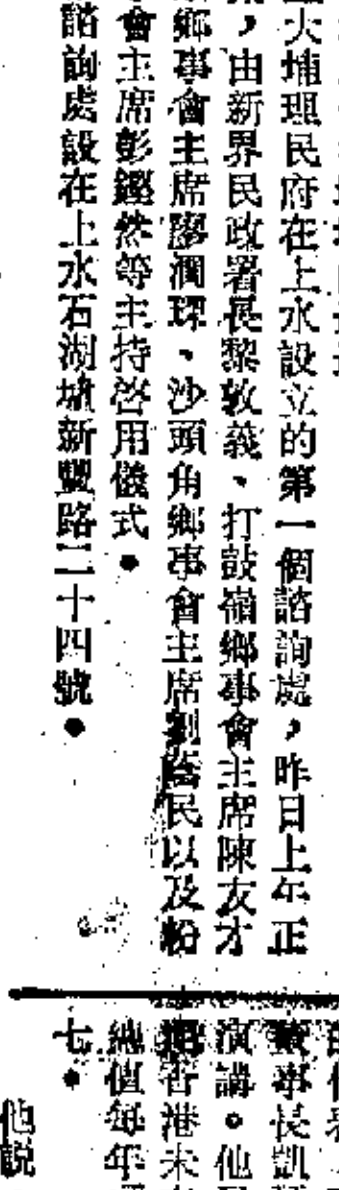 大埔理民府在上水設立的第一個諮詢處，昨日上午正
，由新界民政署長黎敦義、打鼓嶺鄉事會主席陳友才
鄉事會主席廖潤琛、沙頭角鄉事會主席劉蔭民以及粉
會主席彭鏗然等主持啓用儀式。
諮詢處設在上水石湖墟新豐路二十四號。
事長凱
演講。他
香港未
總值每年
七。
他說